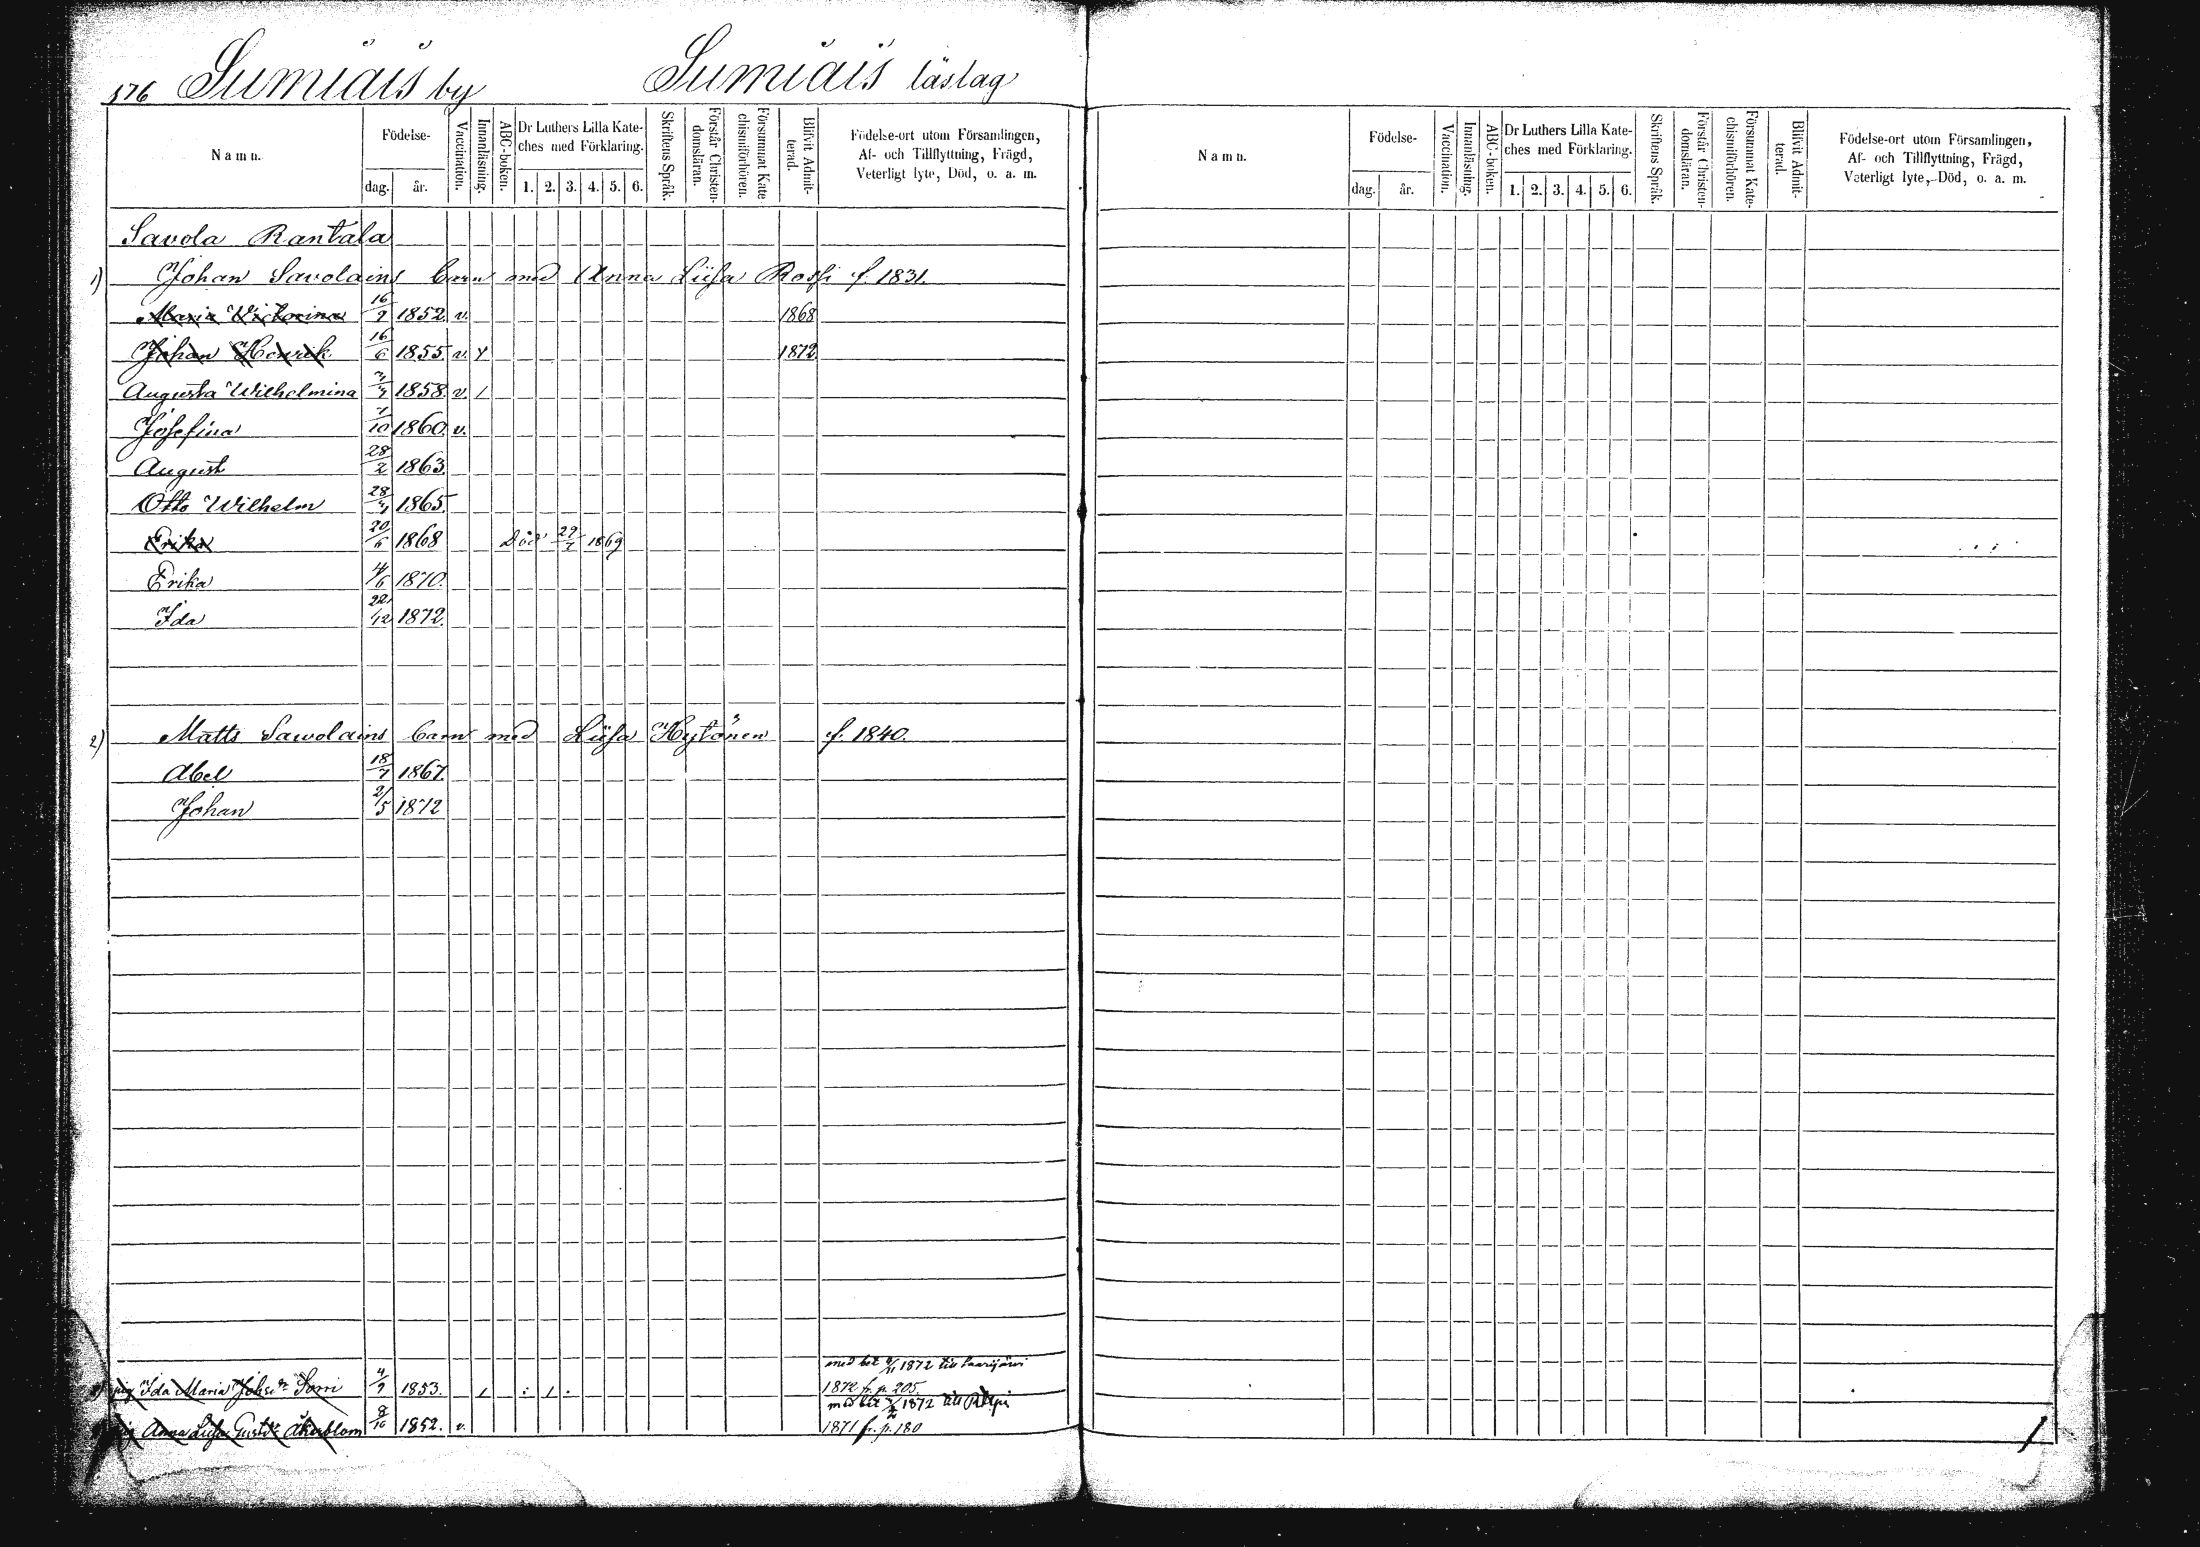 176 Sumiais by Sumiais läslag
Namn. Födelse- dag. år. Vaccination. Innanläsning. ABC-boken. Dr Luthers Lilla Kateches med Förklaring. 1. 2. 3. 4. 5. 6. Skriftens Språk. Förstår Christendomsläran. Försummat Katechismiförhören. Blifvit Admitterad. Födelse-ort utom Församlingen, Af- och Tillflyttning, Frägd, Veterligt lyte, Död, o. a. m.
Savola Rantala
1) Johan Savolains barn med Anna Liisa Rossi f. 1831.
Maria Victorina 16/9 1852. v. 1868
Johan Henrik 16/6 1855. v. Y 1872.
Augusta Wilhelmina 1858. v. /
Josefina 1/10 1860. v.
August 28/2 1863.
Otto Wilhelm 1865.
Erika 20/6 1868 Död 29/7 1869
Erika 4/6 1870.
Ida 22/12 1872.
2) Matts Sawolains barn med Liisa Hytönen f. 1840.
Abel 18/7 1867.
Johan 2/5 1872
med bet 1872 till Saarijärvi
pig Ida Maria Johsdr Sorri 4/9 1853. 1872 fr. p. 205.
med bet 1872 till
Anna Liisa Gustdr Åkerblom 8/10 1852. v. 1871 fr. p. 180
Namn. Födelse- dag. år. Vaccination. Innanläsning. ABC-boken. Dr Luthers Lilla Kateches med Förklaring. 1. 2. 3. 4. 5. 6. Skriftens Språk. Förstår Christendomsläran. Försummat Katechismiförhören. Blifvit Admitterad. Födelse-ort utom Församlingen, Af- och Tillflyttning, Frägd, Veterligt lyte, Död, o. a. m.